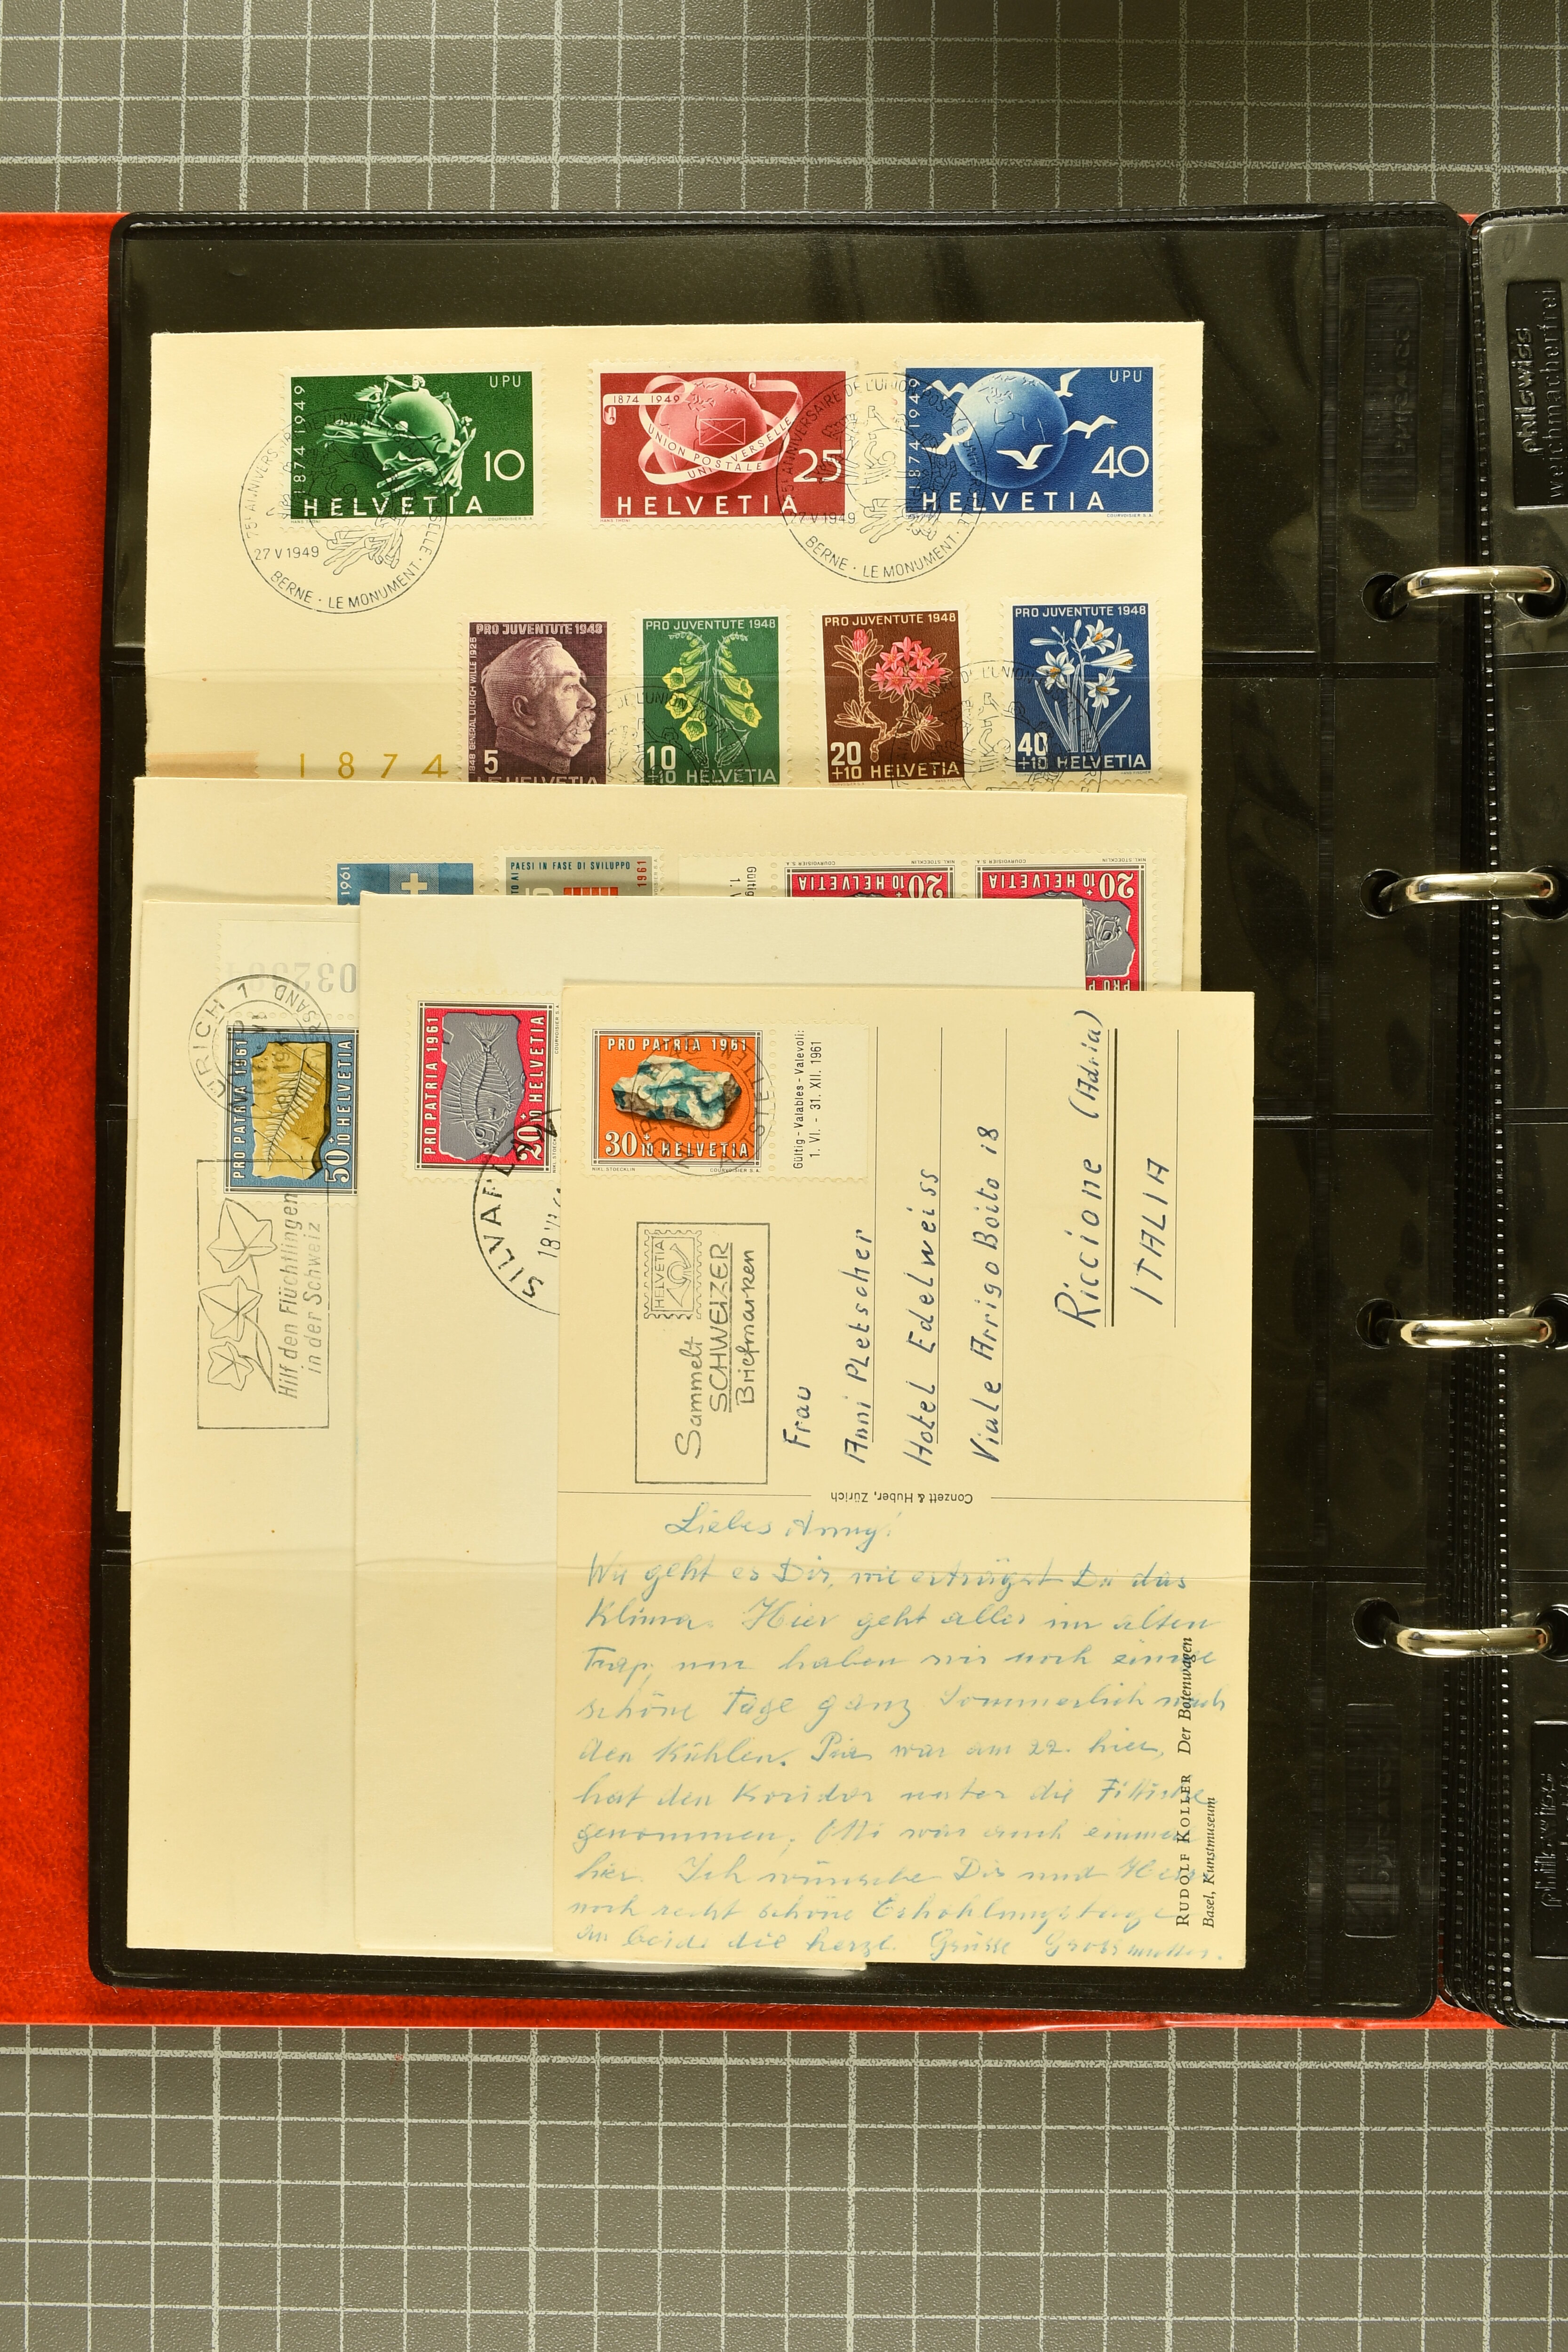 1874 1949
UPU
10
HELVETIA
HANS THÖNI
COURVOISIER S.A.
1874 1949
UNION POSTALE UNIVERSELLE
25
HELVETIA
HANS THÖNI
1874 1949
UPU
40
HELVETIA
COURVOISIER S.A.
27 V 1949
BERNE · LE MONUMENT ·
75e ANNIVERSAIRE DE L'UNION POSTALE UNIVERSELLE ·
27 V 1949
BERNE · LE MONUMENT ·
PRO JUVENTUTE 1948
GENERAL ULRICH WILLE 1925
5
HELVETIA
PRO JUVENTUTE 1948
10
+10 HELVETIA
PRO JUVENTUTE 1948
20
+10 HELVETIA
PRO JUVENTUTE 1948
40
+10 HELVETIA
DE L'UNION
DE L'UNION
1874
1961
PAESI IN FASE DI SVILUPPO
1961
Gültig
1. V
NIKL. STOECKLIN
COURVOISIER S.A.
20+10 HELVETIA
NIKL. STOECKLIN
COURVOISIER S.A.
20+10 HELVETIA
PRO P
ZÜRICH 1
VERSAND
PRO PATRIA 1961
50+10 HELVETIA
Hilf den Flüchtlingen
in der Schweiz
PRO PATRIA 1961
20+10 HELVETIA
COURVOISIER S.A.
NIKL. STOECKLIN
SILVAPLANA
PRO PATRIA 1961
30+10 HELVETIA
NIKL. STOECKLIN
COURVOISIER S.A.
Gültig - Valables - Valevoli:
1. VI. - 31. XII. 1961
HELVETIA
Sammelt
SCHWEIZER
Briefmarken
Frau
Anni Pletscher
Hotel Edelweiss
Viale Arrigo Boito 18
Riccione (Adria)
ITALIA
Conzett & Huber, Zürich
Liebes Anny!
Wie geht es Dir, wie erträgst Du das
Klima. Hier geht alles im alten
Trap, nun haben wir noch einige
schöne Tage ganz Sommerlich nach
den Kühlen. Pia war am 22. hier,
hat den Koridor unter die Fittiche
genommen, Otti war auch einmal
hier. Ich wünsche Dir und Herr
noch recht schöne Erhohlungstage
an beide die herzl. Grüsse Grossmutter.
RUDOLF KOLLER Der Botenwagen
Basel, Kunstmuseum
philswiss
weichmacherfrei